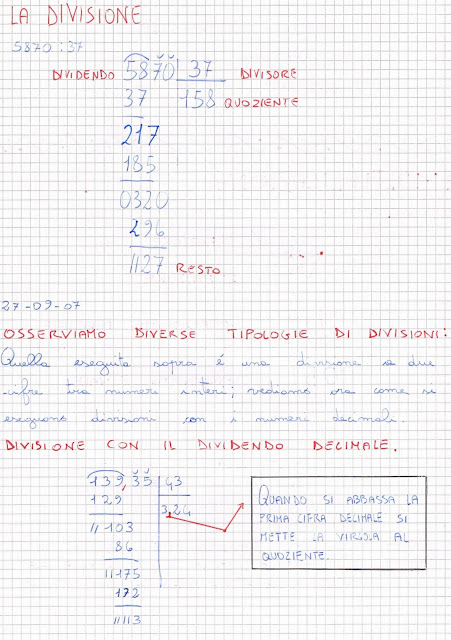 LA DIVISIONE
5870 : 37
DIVIDENDO 5870 37 DIVISORE
37 158 QUOZIENTE
217
185
0320
296
//27 RESTO
27-09-07
OSSERVIAMO DIVERSE TIPOLOGIE DI DIVISIONI:
Quella eseguita sopra é una divisione a due
cifre tra numeri interi; vediamo ora come si
eseguono divisioni con i numeri decimali.
DIVISIONE CON IL DIVIDENDO DECIMALE.
139,35 43
129 3,24
//103
86
//175
172
////3
QUANDO SI ABBASSA LA
PRIMA CIFRA DECIMALE SI
METTE LA VIRGOLA AL
QUOZIENTE.